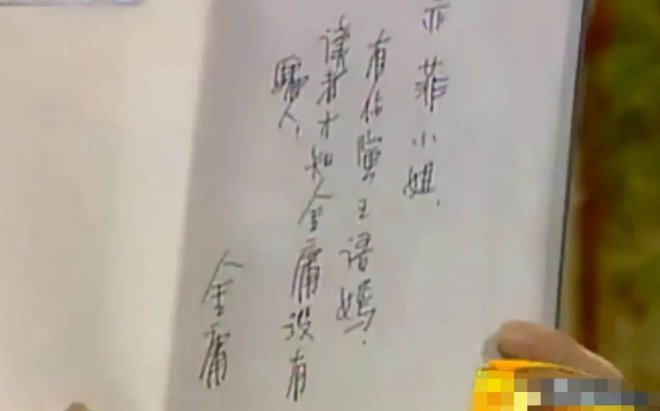 亦菲小姐，
有你演王语嫣，
读者才知金庸没有
骗人，
金庸